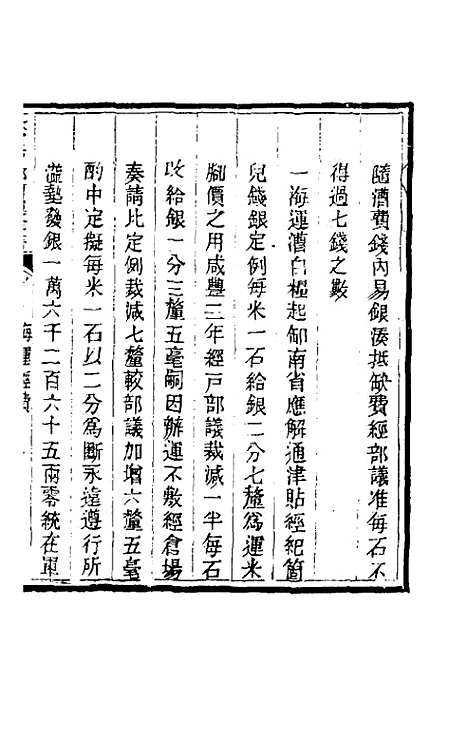 隨漕費錢內易銀湊抵缺費經部議准每石不
得過七錢之數
一海運漕白糧起卸南省應解通津貼經紀箇
兒錢銀定例每米一石給銀二分七釐爲運米
腳價之用咸豐三年經戸部議裁減一半每石
攺給銀一分三釐五毫嗣因辦運不敷經倉場
奏請比定例裁減七釐較部議加增六釐五毫
酌中定擬每米一石以二分爲斷永遠遵行所
墊發銀一萬六千二百六十五兩零統在軍
海運經費